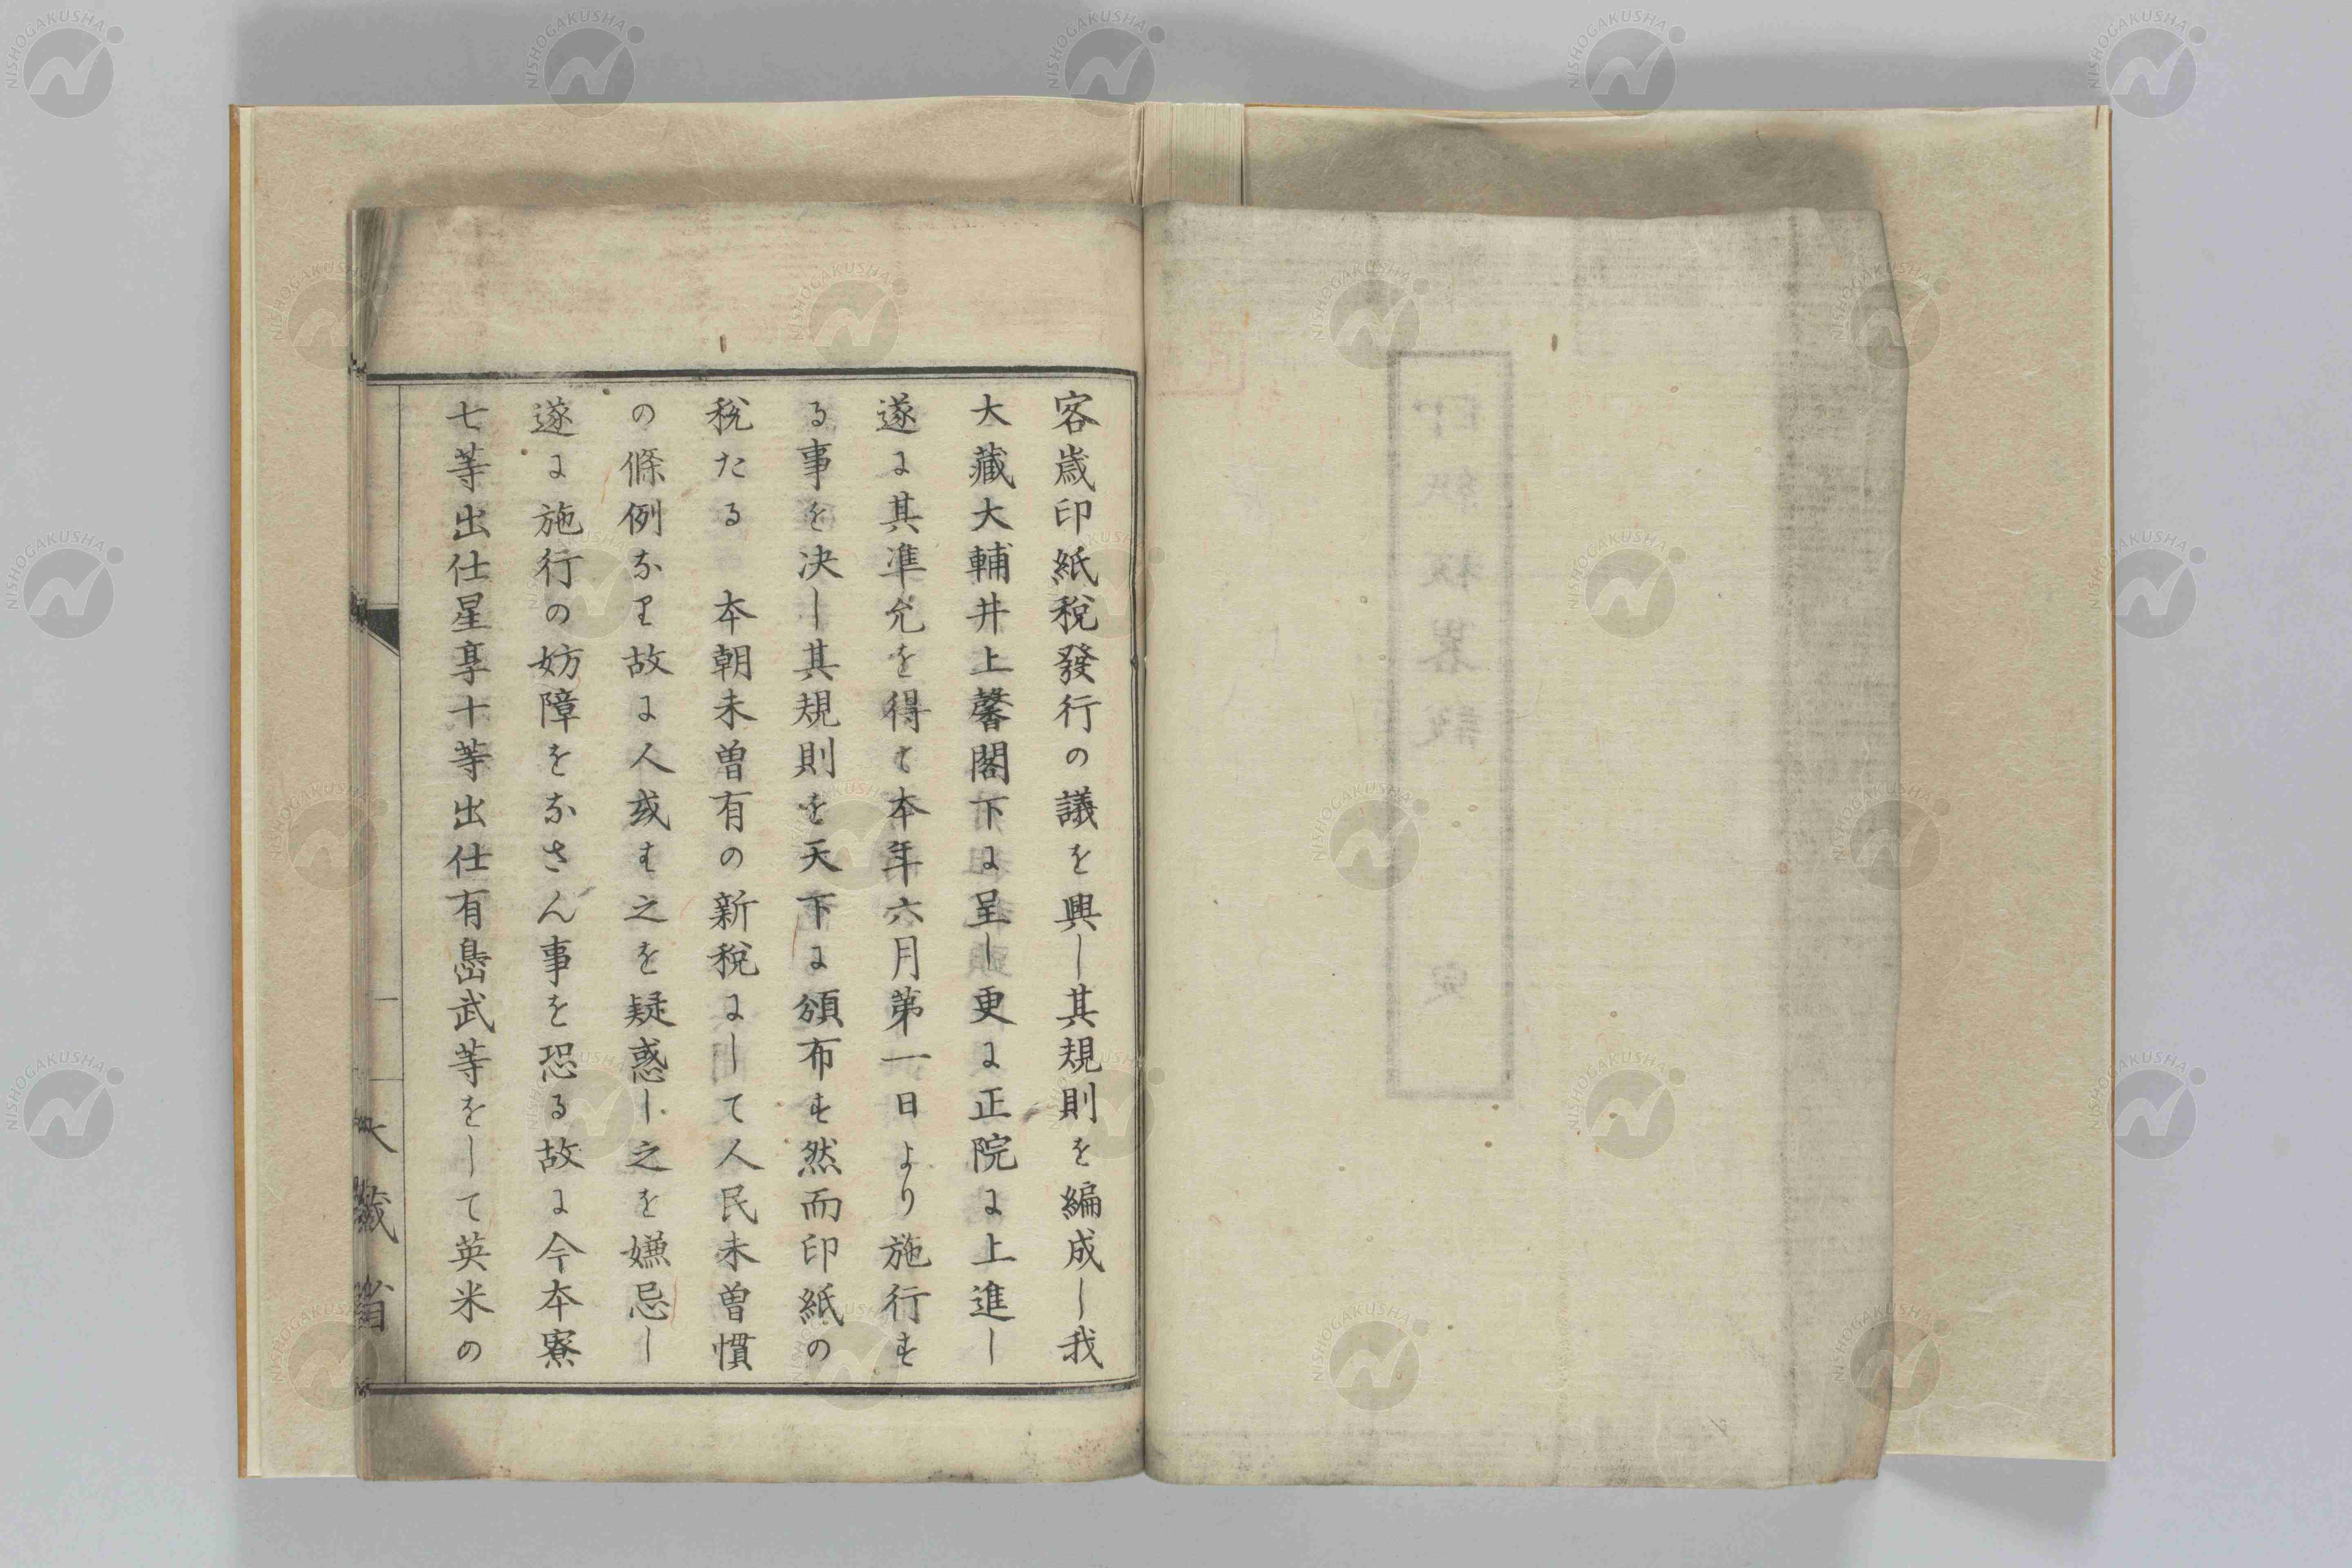 客歳印紙税發行の議を興し其規則を編成し我
大藏大輔井上馨閣下に呈し更に正院に上進し
遂に其準允を得て本年六月第一日より施行す
る事を决し其規則を天下に頒布す然而印紙の
税たる　本朝未曽有の新税にして人民未曽慣
の條例なり故に人或は之を疑惑し之を嫌忌し
遂に施行の妨障をなさん事を恐る故に今本寮
七等出仕星亨十等出仕有嶌武等をして英米の
大藏省
NISHOGAKUSHA